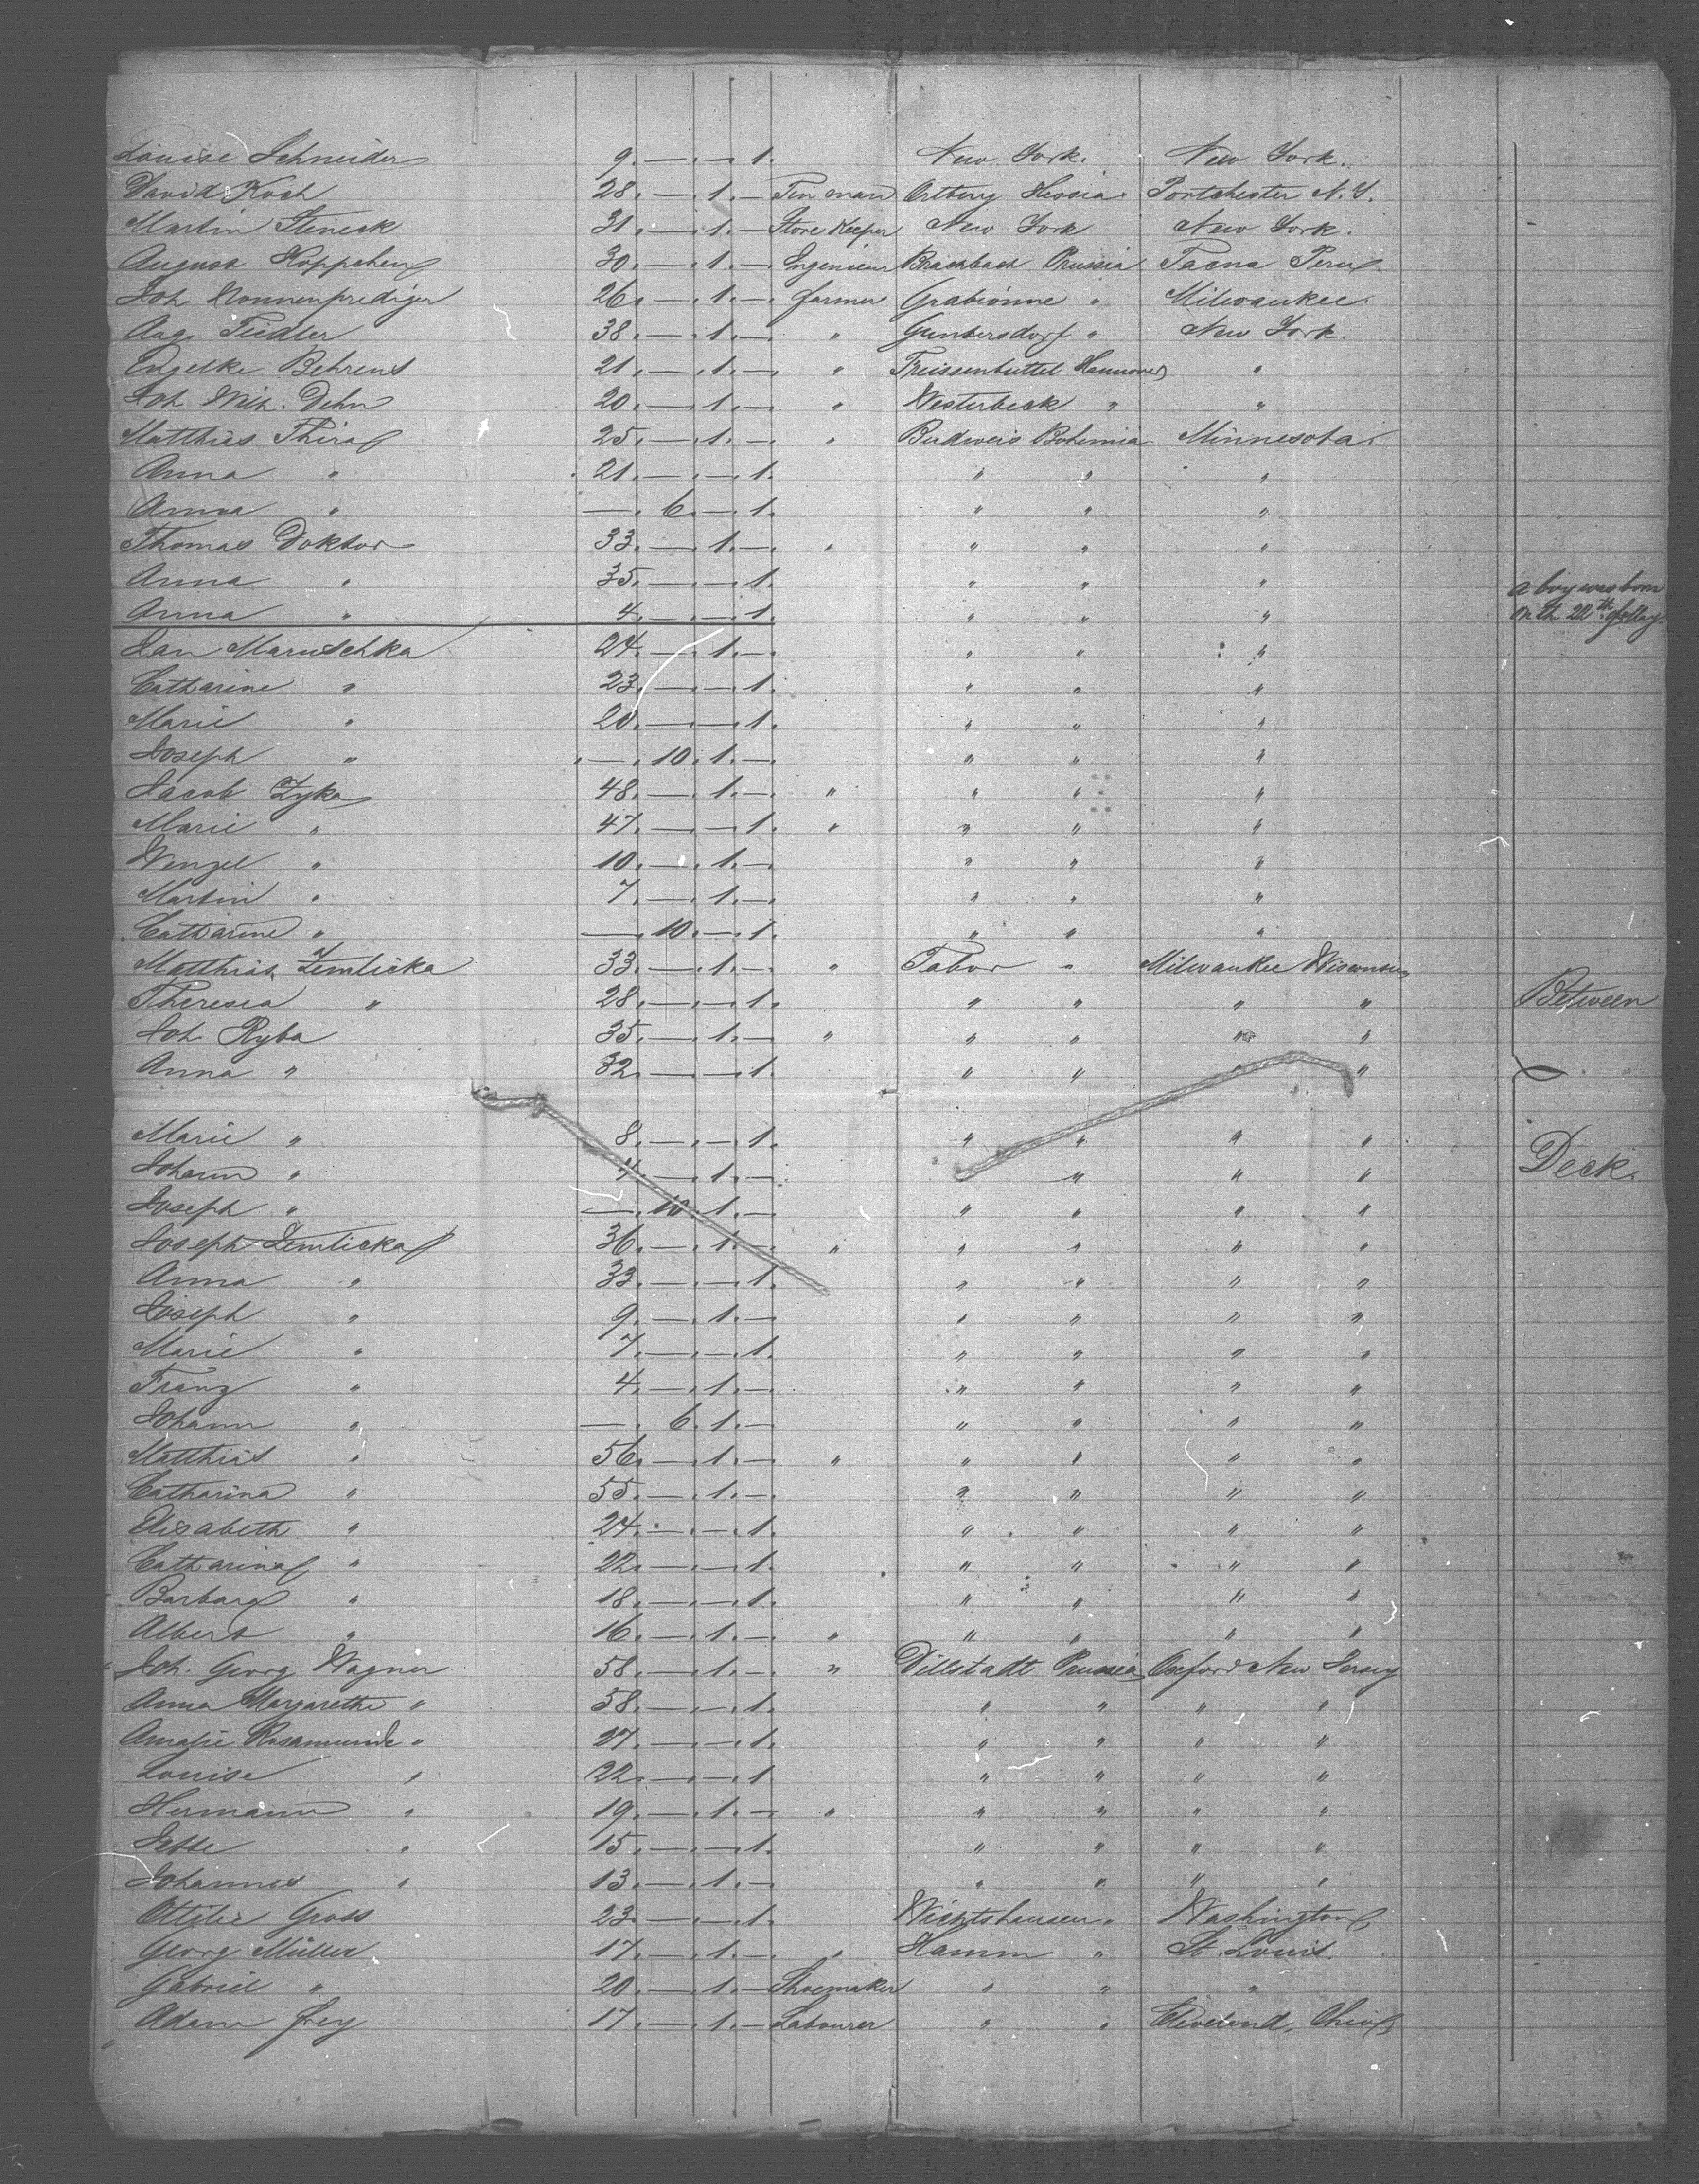 Louise Schneider 9. — . — . 1. New York. New York.
David Koch 28. — . 1. — Tinman Ortberg Hessia Portchester N. Y.
Martin Steneck 31. — . 1. — Store Keeper New York New York.
August Koppehen 30. — . 1. — Ingenieur Brachbach Prussia Tacna Peru.
Joh. Nonnenprediger 26. — . 1. — farmer Grabionne " Milwaukee.
Aug. Fiedler 38. — . 1. — " Guntersdorf " New York.
Engelke Behrens 21. — . 1. — " Freissenbüttel Hannover "
Joh. Wilh. Dehn 20. — . 1. — " Westerbeck " "
Matthias Thira 25. — . 1. — " Budweis Bohemia Minnesota.
Anna " 21. — . — . 1. " " "
Anna " — . 6. — . 1. " " "
Thomas Doktor 33. — . 1. — " " " "
Anna " 35. — . — . 1. " " "
Anna " 4. — . — . 1. " " " a boy was born on the 22th of May.
Jan Maruschka 24. — . 1. — " " "
Catharine " 23. — . — . 1. " " "
Marie " 20. — . — . 1. " " "
Joseph " — . 10. 1. — " " "
Jacob Zyka 48. — . 1. — " " " "
Marie " 47. — . — . 1. " " " "
Wenzel " 10. — . 1. — " " "
Martin " 7. — . 1. — " " "
Catharine " — . 10. — . 1. " " "
Matthias Zemlicka 33. — . 1. — " Tabor " Milwaukee Wisconsin
Theresia " 28. — . — . 1. " " " " Between
Joh. Ryba 35. — . 1. — " " " " "
Anna " 32. — . — . 1. " " " "
Marie " 8. — . — . 1. " " " "
Johann " 4. — . 1. — " " " Deck.
Joseph " — . 10. 1. — " " " "
Joseph Zemlicka 36. — . 1. — " " " " "
Anna " 33. — . — . 1. " " " "
Joseph " 9. — . 1. — " " " "
Marie " 7. — . — . 1. " " " "
Franz " 4. — . 1. — " " " "
Johann " — . 6. 1. — " " " "
Matthias " 56. — . 1. — " " " " "
Catharina " 55. — . 1. — " " " "
Elisabeth " 24. — . — . 1. " " " "
Catharina " 22. — . — . 1. " " " "
Barbara " 18. — . — . 1. " " " "
Albert " 16. — . 1. — " " " " "
Joh. Georg Wagner 58. — . 1. — " Dillstadt Prussia Oxford New Jersey
Anna Margarethe " 58. — . — . 1. " " " "
Amalie Rosamunde " 27. — . — . 1. " " " "
Louise " 22. — . — . 1. " " " "
Hermann " 19. — . 1. — " " " " "
Jette " 15. — . — . 1. " " " "
Johannes " 13. — . 1. — " " " "
Ottilie Gross 23. — . — . 1. Wichtshausen " Washington
Georg Müller 17. — . 1. — " Hamm " St. Louis.
Gabriel " 20. — . 1. — Shoemaker " " "
Adam Frey 17. — . 1. — Labourer " " Cleveland, Ohio